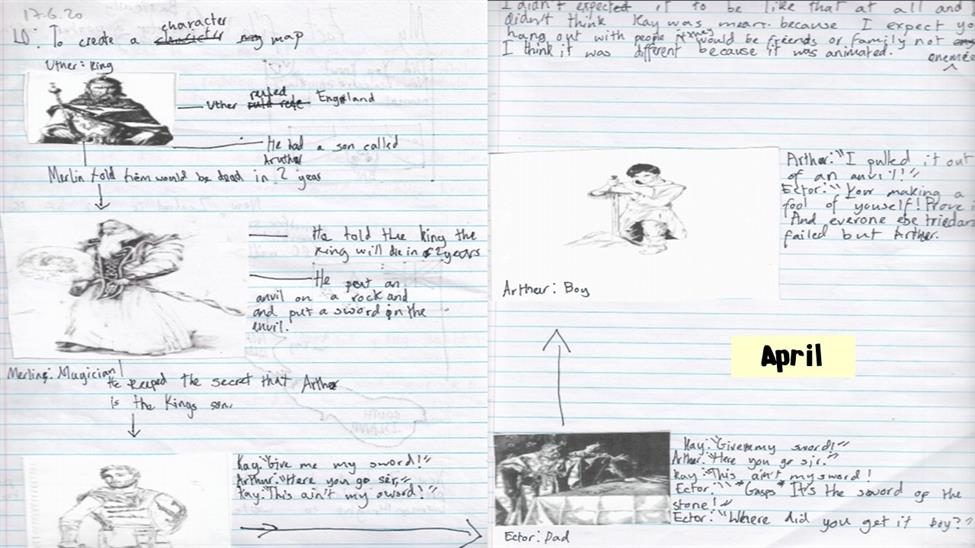 17.6.20
character
LO: To create a map
Uther: King
Uther ruled England
He had a son called
Aruther
Merlin told him would be dead in 2 years
He told the king the
king will die in 2 years
He put an
anvil on a rock and
and put a sword in the
envil.
Merlin: Magician
He keeped the secret that Arther
is the Kings son.
Kay: "Give me my sword!"
Arthur: "Here you go sir,"
Kay: "This ain't my sword!"
I didn't expected it to be like that at all and
didn't think Kay was mean because I expect you
hang out with people it would be friends or family not
enemie
I think it was different because it was animated.
Arther: "I pulled it out
of an anvil!"
Ector: "Your making a
fool of youself! Prove
And everone else tried
failed but Arther.
Arther: Boy
April
Kay: "Give my sword!"
Arther: "Here you go sir."
Kay: "This ain't my sword!
Ector: "*Gasps* It's the sword of the
stone!"
Ector: "Where did you get it boy?"
Ector: Dad